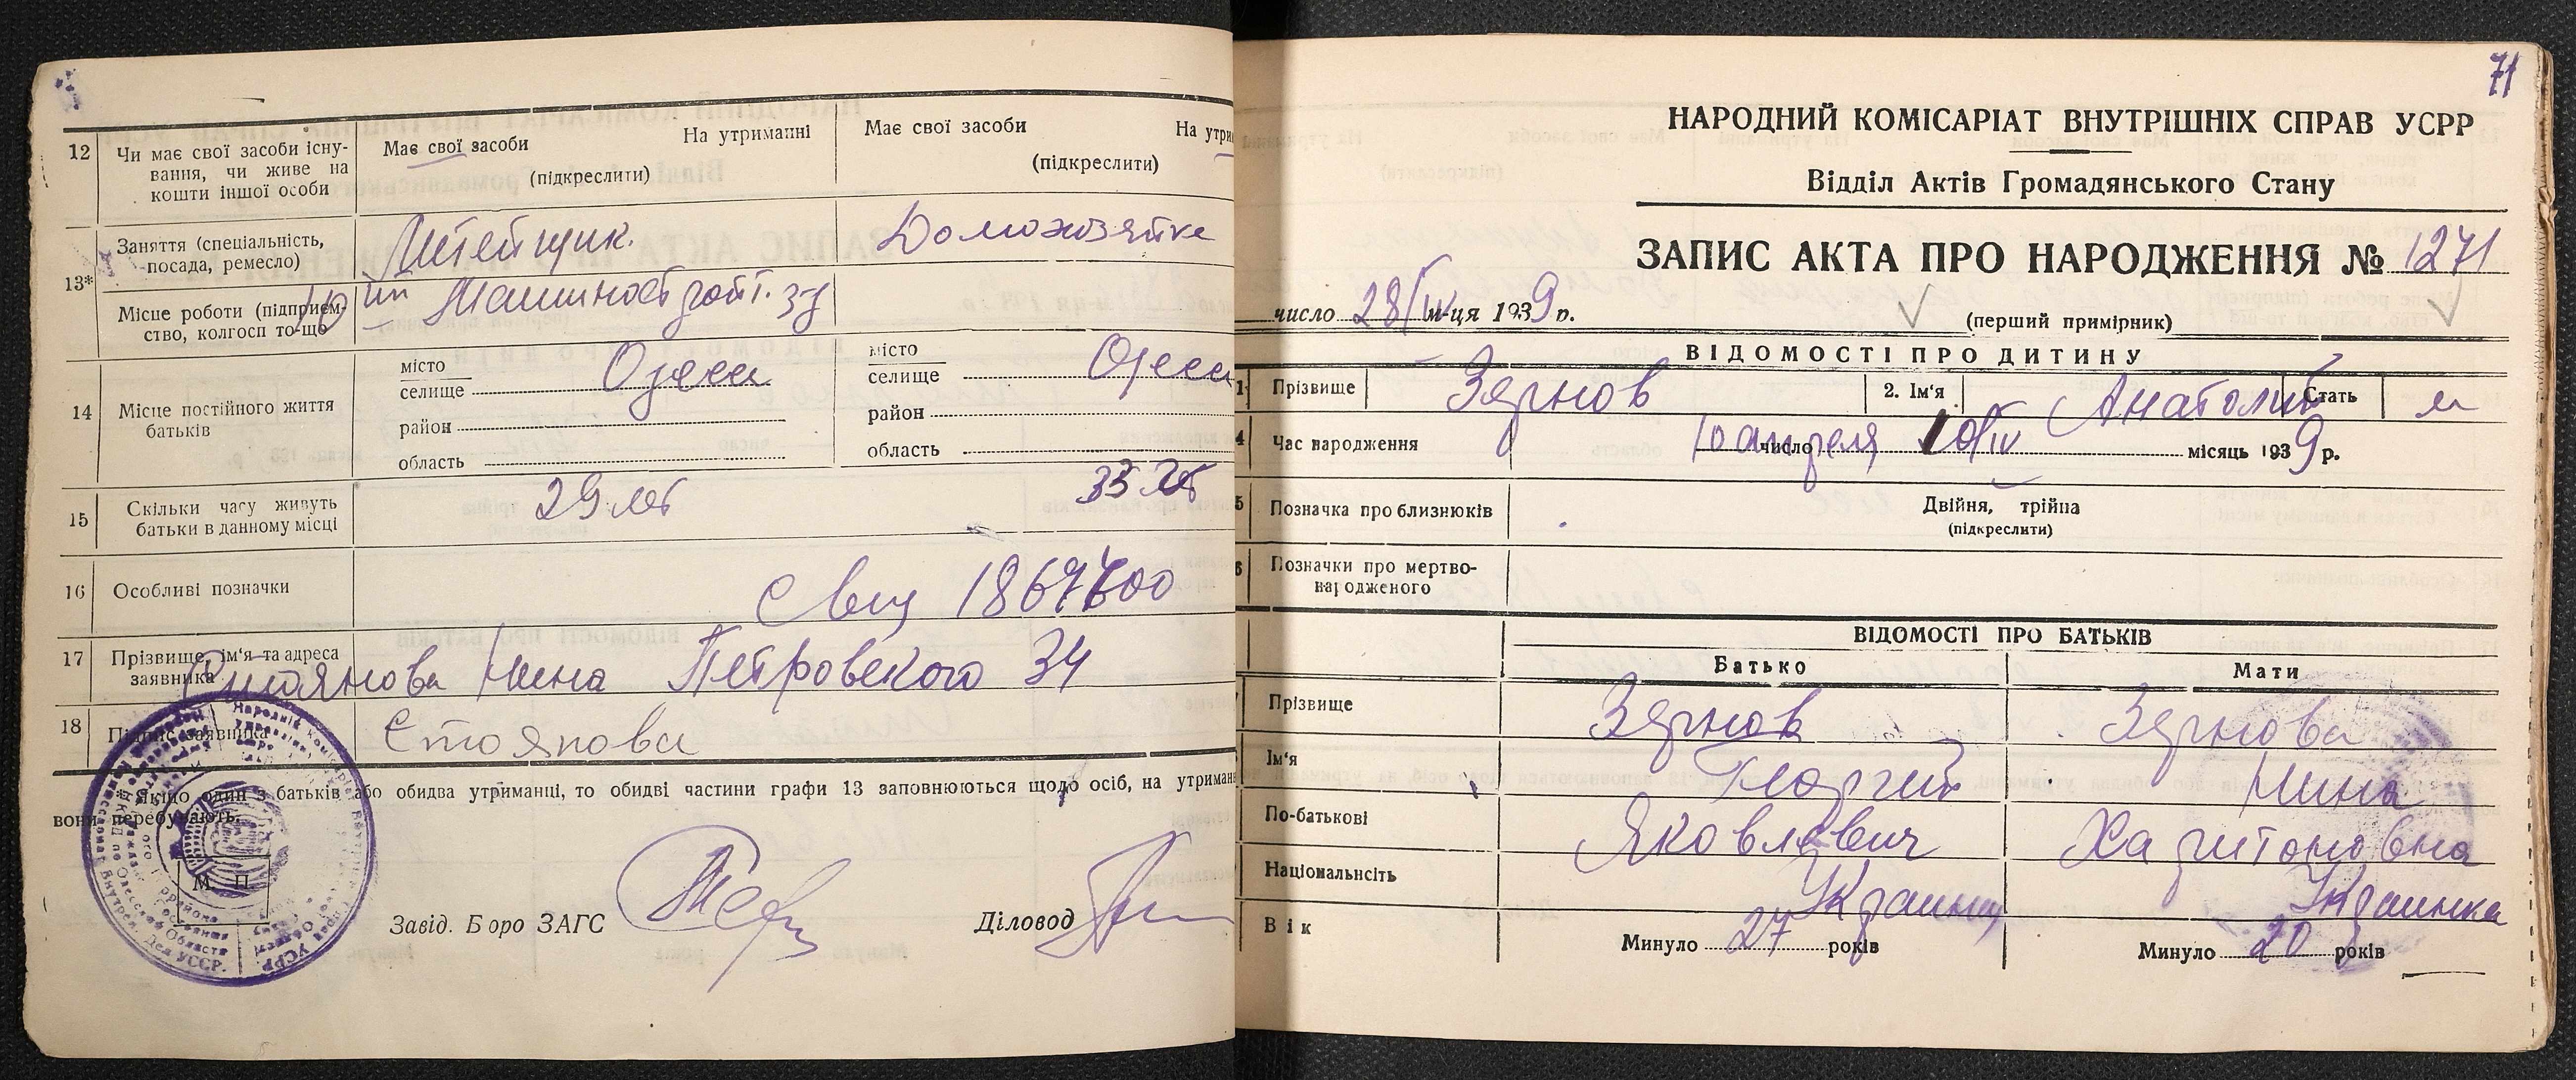 12
Чи має свої засоби існування, чи живе на кошти іншої особи
Має свої засоби
На утриманні
(підкреслити)
Має свої засоби
На утри
(підкреслити)
13*
Заняття (спеціальність, посада, ремесло)
Литейщик.
Домохозяйка
Місце роботи (підприємство, колгосп то-що
14
Місце постійного життя батьків
місто
селище
Одесса
район
область
місто
селище
Одесса
район
область
15
Скільки часу живуть батьки в данному місці
29 лет
33 лет
16
Особливі позначки
17
Прізвище, ім'я та адреса заявника
Стоянова Нина Петровского 34
18
Підпис заявника
Стоянова
* Якщо один з батьків або обидва утриманці, то обидві частини графи 13 заповнюються щодо осіб, на утриман
вони перебувають.
М. П.
Завід. Бюро ЗАГС
Діловод
71
НАРОДНИЙ КОМІСАРІАТ ВНУТРІШНІХ СПРАВ УСРР
Відділ Актів Громадянського Стану
ЗАПИС АКТА ПРО НАРОДЖЕННЯ № 1271
число 28/IV м-ця 1939 р.
(перший примірник)
ВІДОМОСТІ ПРО ДИТИНУ
1 Прізвище
Зернов
2. Ім'я
Анатолий
Стать
м
4 Час народження
10 апреля число 10/IV місяць 1939 р.
5 Позначка про близнюків
Двійня, трійня
(підкреслити)
6 Позначки про мертвонародженого
ВІДОМОСТІ ПРО БАТЬКІВ
Батько
Мати
Прізвище
Зернов
Зернова
Ім'я
Георгий
Нина
По-батькові
Яковлевич
Харитоновна
Національність
Украинец
Украинка
Вік
Минуло 27 років
Минуло 20 років